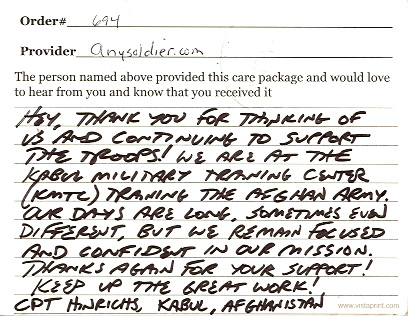 Order# 694
Provider anysoldier.com
The person named above provided this care package and would love
to hear from you and know that you received it
HEY, THANK YOU FOR THINKING OF
US AND CONTINUING TO SUPPORT
THE TROOPS! WE ARE AT THE
KABUL MILITARY TRAINING CENTER
(KMTC) TRAINING THE AFGHAN ARMY.
OUR DAYS ARE LONG, SOMETIMES EVEN
DIFFERENT, BUT WE REMAIN FOCUSED
AND CONFIDENT IN OUR MISSION.
THANKS AGAIN FOR YOUR SUPPORT!
KEEP UP THE GREAT WORK!
CPT HINRICHS, KABUL, AFGHANISTAN
www.vistaprint.com